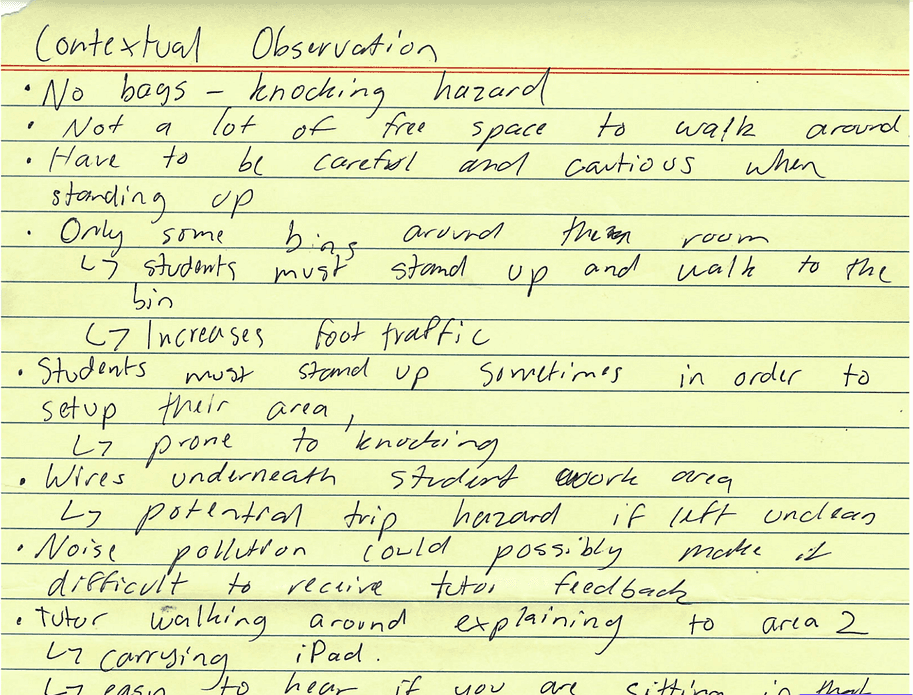 Contextual Observation
· No bags - knocking hazard
· Not a lot of free space to walk around
· Have to be careful and cautious when
standing up
· Only some bins around the room
↳ students must stand up and walk to the
bin
↳ Increases foot traffic
· Students must stand up sometimes in order to
setup their area,
↳ prone to knocking
· Wires underneath student work area
↳ potential trip hazard if left unclean
· Noise pollution could possibly make it
difficult to receive tutor feedback
· Tutor walking around explaining to area 2
↳ carrying iPad.
↳ easy to hear if you are sitting in that